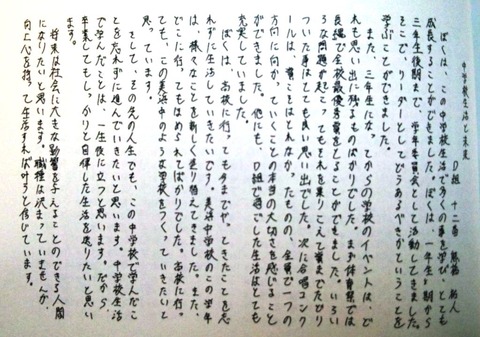 中学校生活と未来
D組 十二番 熊谷 拓人
ぼくは、この中学校生活で多くの事を学び、とても
成長することができました。ぼくは、一年生、前期から
三年生後期まで、学年委員会として活動してきました。
そこで、リーダーとしてどうあるべきかということを
学ぶことができました。
また、三年生になってからの学校のイベントは、ど
れも思い出に残るものばかりでした。まず体育祭では
良組で全校最優秀賞をとることができました。いろい
ろな問題が起こってもそれを乗りこえて賞までたどり
ついた事はとても良い思い出でした。次に合唱コンク
ールは、賞ことはとれなかったものの、全員で一つの
方向に向かっていくことの本当の大切さを感じること
ができました。他にも、D組で過ごした生活はとても
充実していました。
ぼくは、高校に行っても今までやってきたことを忘
れずに生活していきたいです。美浜中学校のこの学年
は、様々なことを新しく造り替えてきました。また、
どこに行ってもほめられてばかりでした。高校に行っ
ても、この美浜中のような学校をつくっていきたいと
思っています。
そして、その先の人生でも、この中学校で学んだこ
とを忘れずに進んでいきたいと思います。中学校生活
で学んだことは、一生役に立つと思います。だから、
卒業してもしっかりと自律した生活を送りたいと思い
ます。
将来は社会に大きな影響を与えることのできる人間
になりたいと思います。職種は決まっていませんが、
向上心を持って生活すれば叶うと信じています。